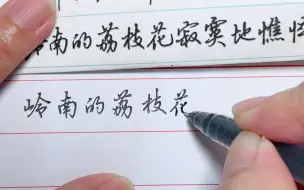 岭南的荔枝花寂寞地憔悴
岭南的荔枝花